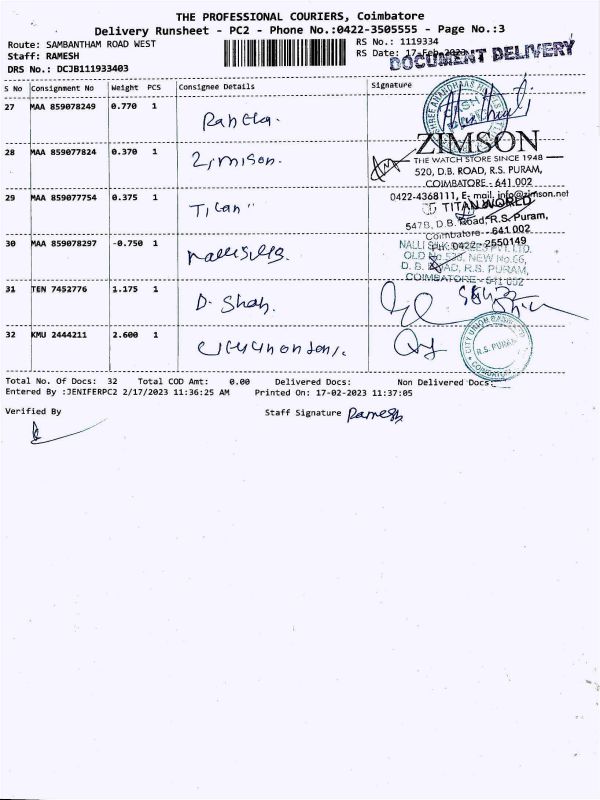 THE PROFESSIONAL COURIERS, Coimbatore
Delivery Runsheet - PC2 - Phone No.:0422-3505555 - Page No.:3
Route: SAMBANTHAM ROAD WEST
RS No.: 1119334
Staff: RAMESH
RS Date: 17-Feb-2023
DOCUMENT DELIVERY
DRS No.: DCJB111933403
S No Consignment No Weight PCS Consignee Details Signature
27 MAA 859078249 0.770 1
28 MAA 859077824 0.370 1 Zimson.
ZIMSON
THE WATCH STORE SINCE 1948
520, D.B. ROAD, R.S. PURAM,
COIMBATORE - 641 002
0422-4368111, E- mail. info@zimson.net
29 MAA 859077754 0.375 1 Titan"
TITAN WORLD
547B, D.B. Road, R.S. Puram,
Coimbatore - 641 002
Ph: 0422-2550149
30 MAA 859078297 -0.750 1 nallisilks.
NALLI SILK
OLD No. NEW No.66,
D. B. ROAD, R.S. PURAM,
COIMBATORE - 641 002
31 TEN 7452776 1.175 1 D. Shah.
32 KMU 2444211 2.600 1
CITY UNION BANK LTD
R.S. PURAM
Total No. Of Docs: 32 Total COD Amt: 0.00 Delivered Docs: Non Delivered Docs:
Entered By :JENIFERPC2 2/17/2023 11:36:25 AM Printed On: 17-02-2023 11:37:05
Verified By
Staff Signature Ramesh